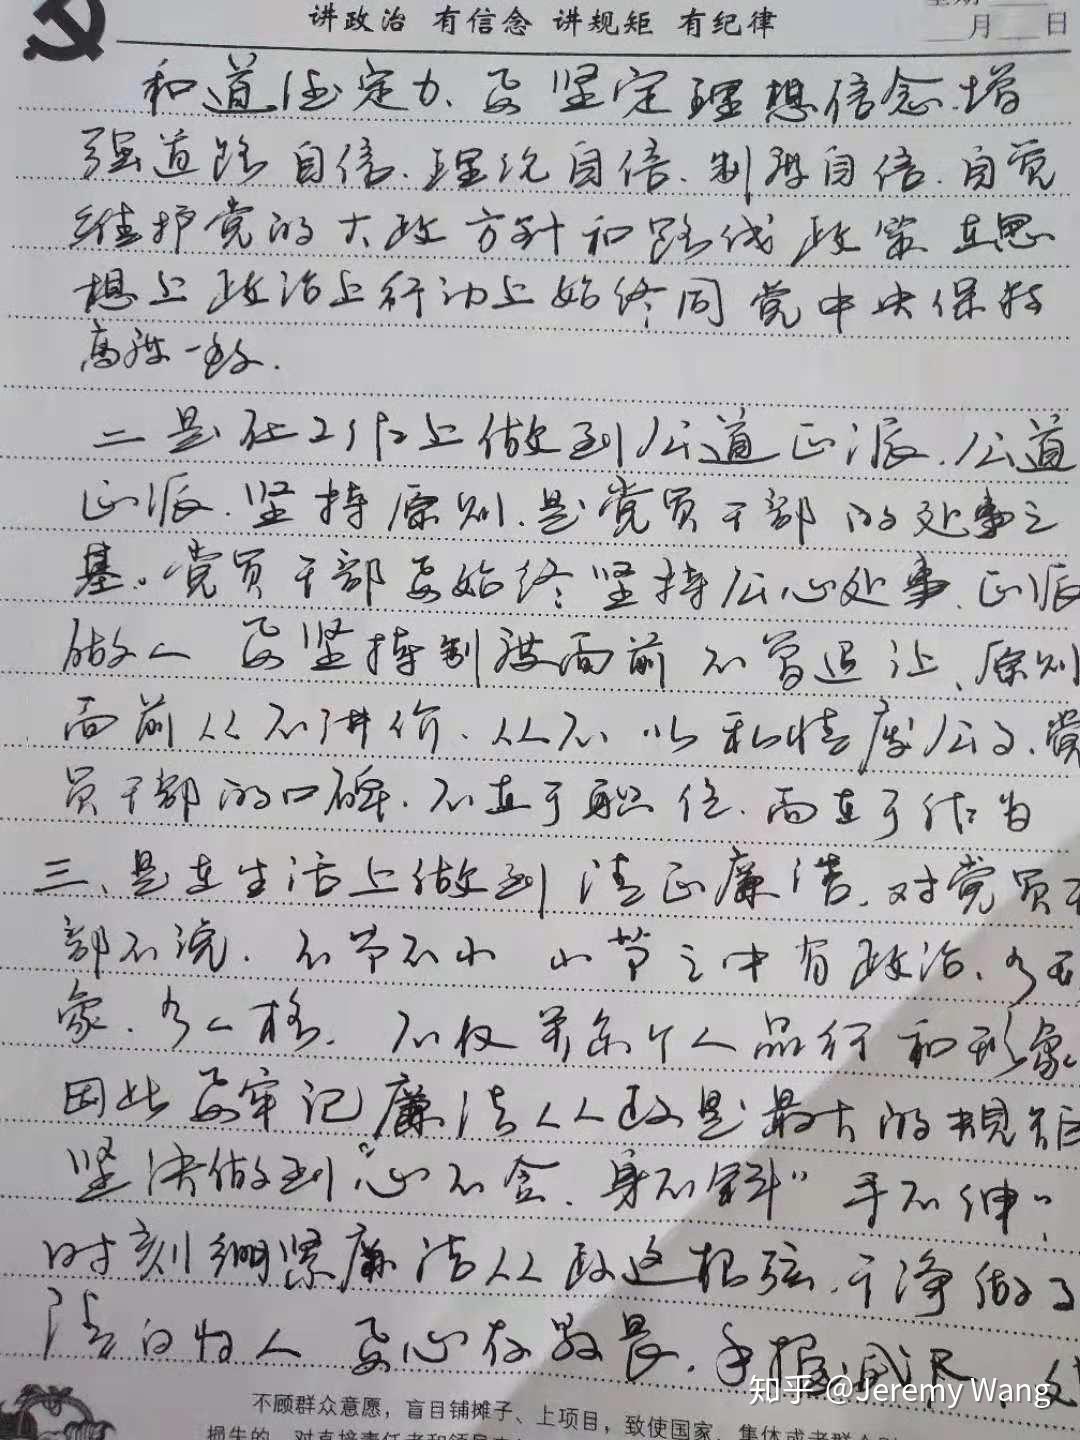 讲政治 有信念 讲规矩 有纪律
月 日
和道德定力、要坚定理想信念、增
强道路自信、理论自信、制度自信、自觉
维护党的大政方针和路线政策 在思
想上政治上行动上始终同党中央保持
高度一致.
二是在工作上做到公道正派.公道
正派.坚持原则.是党员干部的处事之
基。党员干部要始终坚持公心处事、正派
做人 要坚持制度面前不曾退让、原则
面前从不讲价.从不以私情废公了.党
员干部的口碑.不在于职位.而在于作为
三、是在生活上做到清正廉洁.对党员干
部不说.不节不小 小节之中有政治、有形
象.有人格. 不仅关系个人品行和形象
因此要牢记廉洁从政是最大的规矩
坚决做到“心不贪、身不斜”手不伸”
时刻绷紧廉洁从政这根弦.干净做事
清白的人 要心存敬畏.手握戒尺
知乎 @Jeremy Wang
不顾群众意愿，盲目铺摊子、上项目，致使国家、集体或者群众